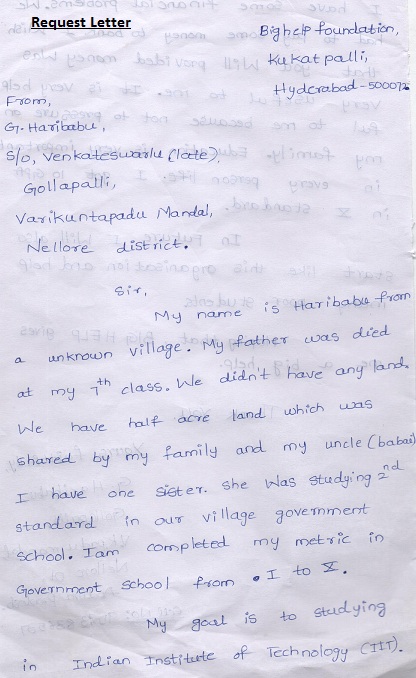 Request Letter
Bighelp foundation,
Kukatpalli,
Hyderabad-500072
From,
G. Haribabu,
S/o, Venkateswarlu (late),
Gollapalli,
Varikuntapadu Mandal,
Nellore district.
Sir,
My name is Haribabu from
a unknown village. My father was died
at my 7th class. We didn't have any land.
We have half acre land which was
shared by my family and my uncle (babai)
I have one sister. she was studying 2nd
standard in our village government
school. Iam completed my metric in
Government school from I to X.
My goal is to studying
in Indian Institute of Technology (IIT).